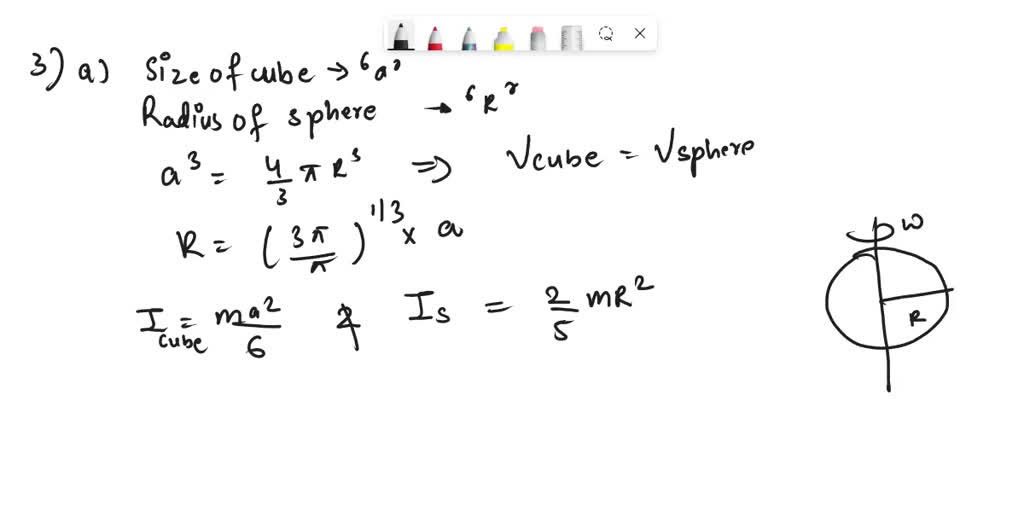 3) a) Size of cube → "a"
Radius of sphere → "R"
a³ = 4/3 π R³ ⇒ Vcube = Vsphere
R = (3π/π)^1/3 × a
I cube = ma²/6 & Is = 2/5 mR²
ω
R